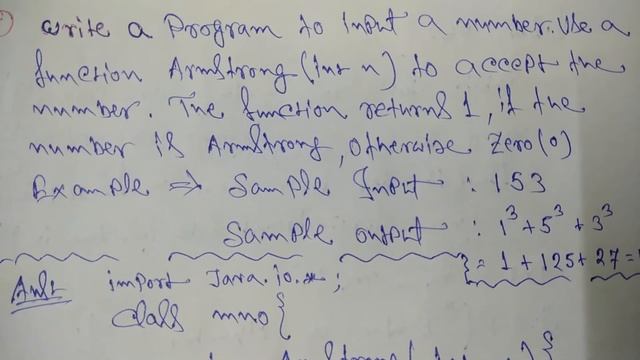 Write a Program to input a number. Use a
function Armstrong (int n) to accept the
number. The function returns 1, if the
number is Armstrong, otherwise zero (0)
Example ⇒ Sample Input : 153
Sample output : 1³ + 5³ + 3³
= 1 + 125 + 27 =
Ans: import Java.io.*;
Class mno{